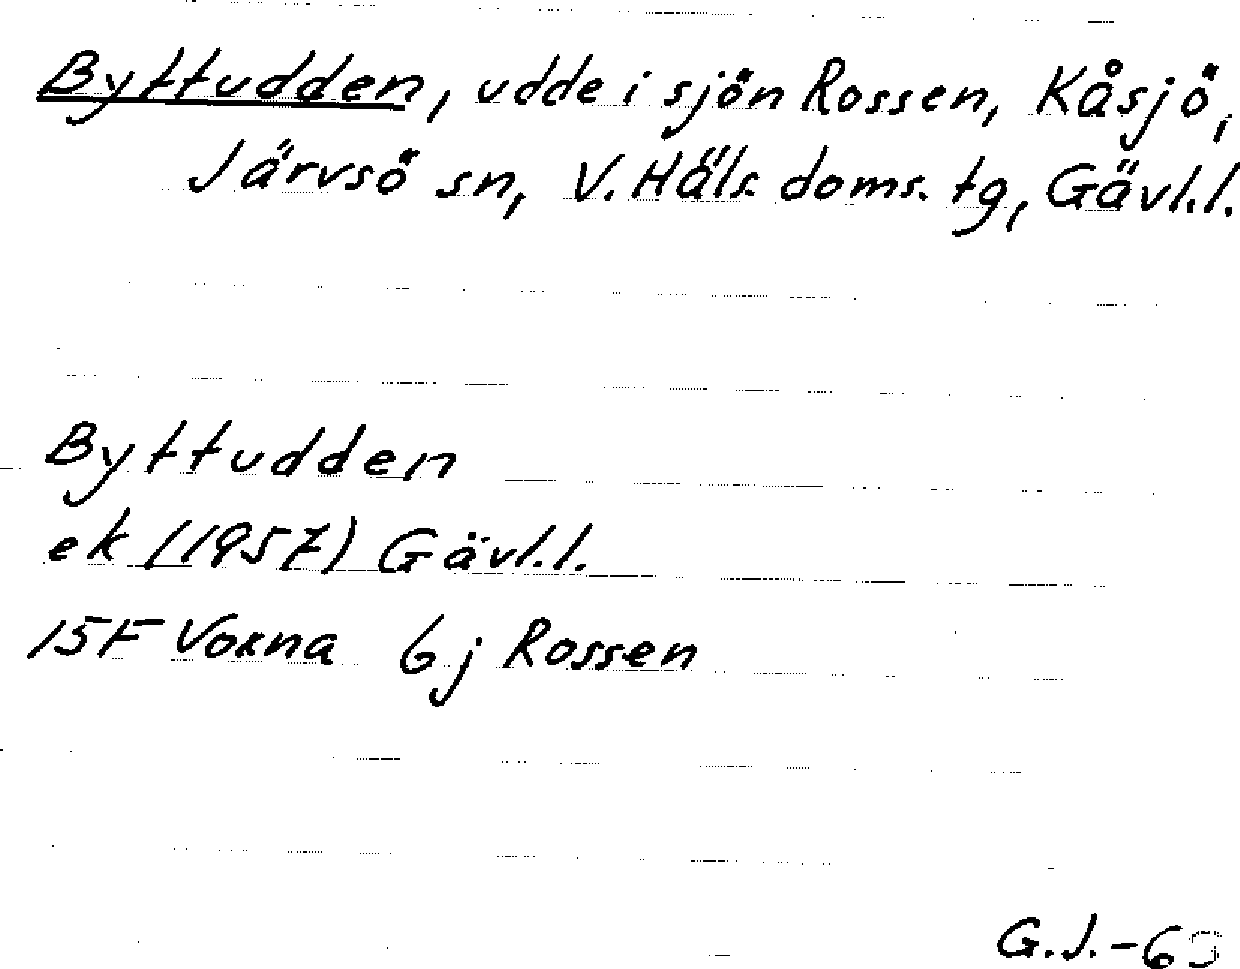 Byttudden, udde i sjön Rossen, Kåsjö,
Järvsö sn, V. Häls. doms. tg, Gävl.l.
Byttudden
ek (1957) Gävl.l.
15F Voxna 6j Rossen
G.J.-69